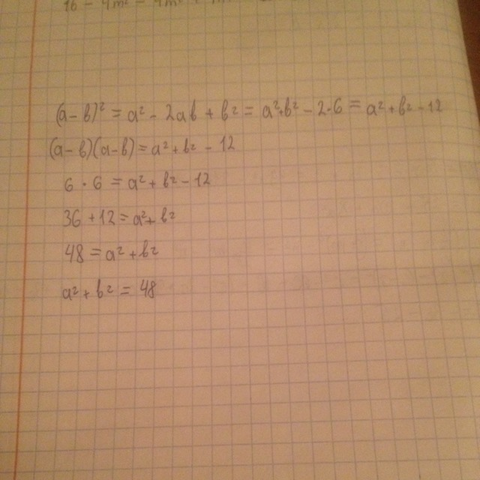 (a-b)² = a² - 2ab + b² = a²+b² - 2·6 = a²+b² - 12
(a-b)(a-b) = a²+b² - 12
6 · 6 = a²+b² - 12
36 + 12 = a²+b²
48 = a²+b²
a²+b² = 48